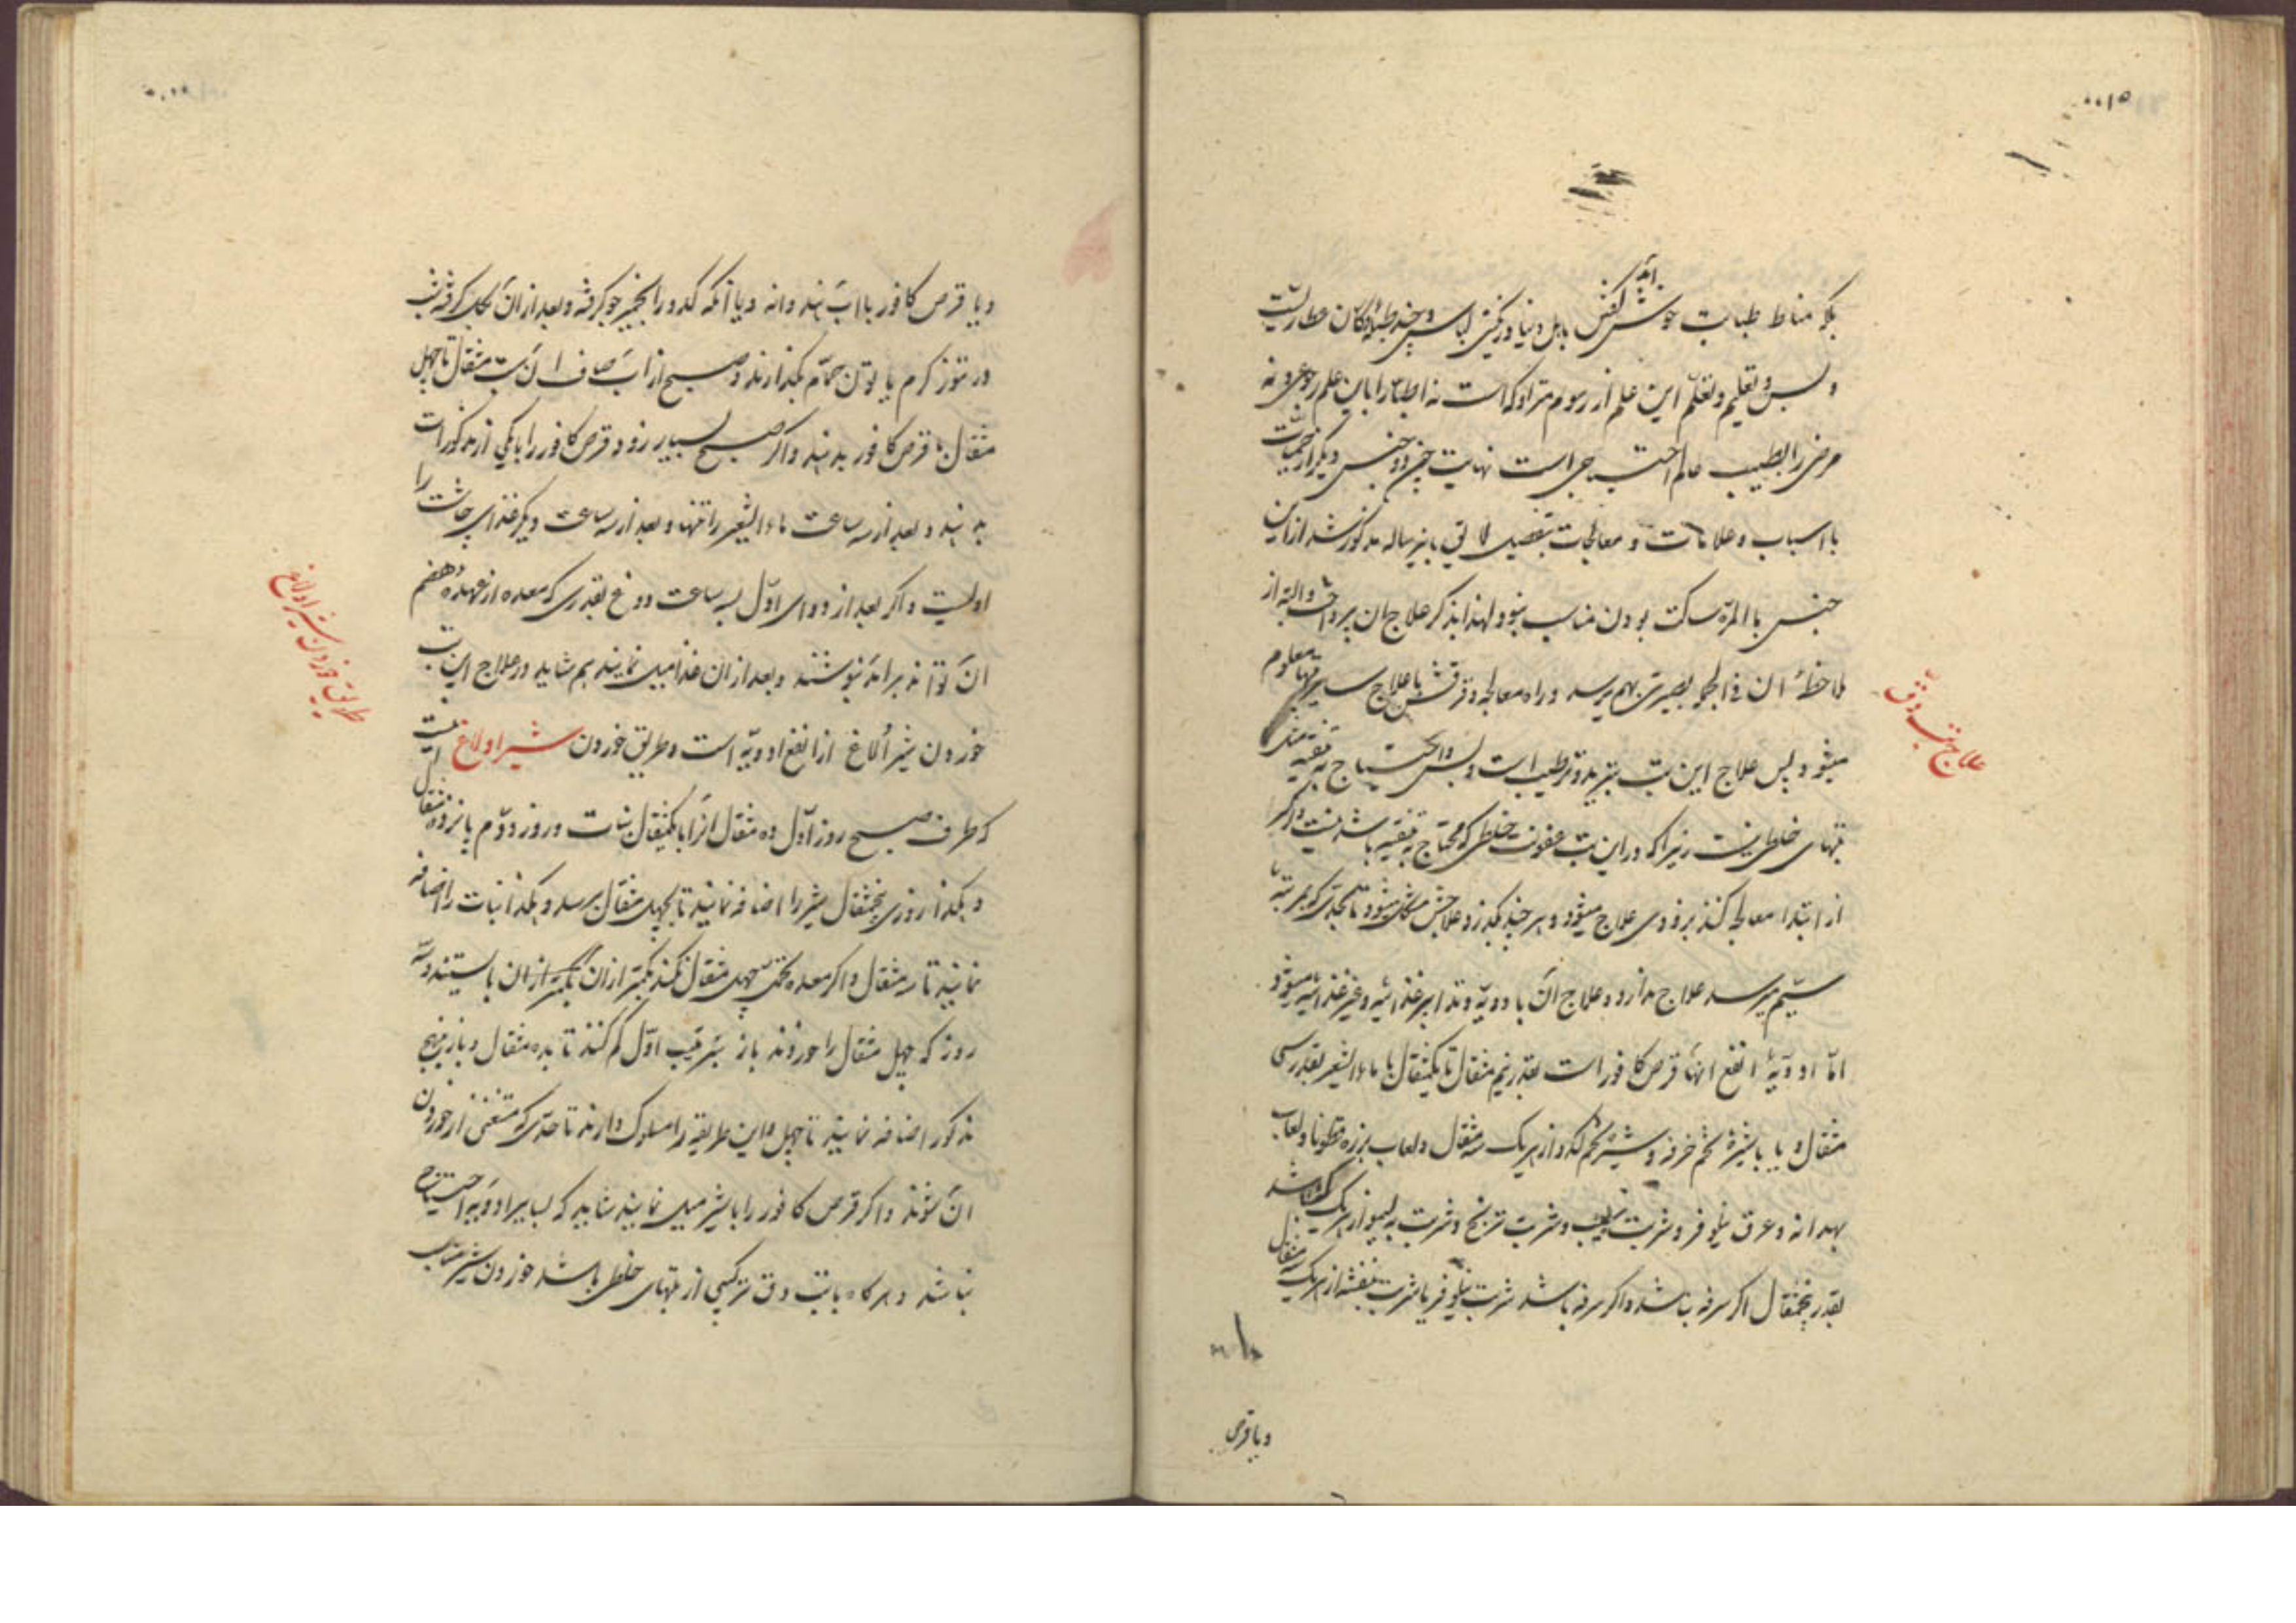 بلکه مناط طبابت خوش کفش باهل دنیا و رنکینی لباس و
و بس و تعلیم و تعلّم این علم از رسوم متروکه است نه اطبا را باین علم رجوعی و نه
مرض را بطبیب عالم احتیاجی است نهایت چون دو جنس دیکر از حمیات
با اسباب و علامات و معالجات بتفصیل لایق باینرساله مذکور شد ازین
جنس باالمرّه ساکت بودن مناسب نبود لهذا بذکر علاج ان پرداخت و البته از
ملاحظهٔ ان فی الجمله بصیرتی بهم میرسد و راه معالجه و فرقش با علاج سایر تبها معلوم
میشود پس علاج این تب تبرید و ترطیب است و بس و احتیاج به تنقیه مثل
تبهای خلطی نیست زیرا که در این تب عفونت خلطی که محتاج به تنقیه باشد نیست و اکر
از ابتدا معالجه کنند بزودی علاج میشود و هر چند بکذرد علاجش مشکل میشود تا بحدی که بمرتبهٔ
سیّم میرسد علاج ندارد و علاج انَ با دویّه و تدابیر غذائیه و غیر غذائیه میشود
امّا ادویّهٔ انفع انها قرص کافور است بقدر نیم مثقال تا یکمثقال با ماء الشعیر بقدر سی
مثقال و یا با شیرهٔ تخم خرفه و شیرهٔ تخم کدو از هر یک سه مثقال و لعاب بزره قطونا و لعاب
بهدانه و عرق نیلوفر و شربت سیب و شربت ترنج و شربت به لیمو از هر یک که باشد
بقدر پنجمثقال اکر سرفه نباشد و اکر سرفه باشد شربت نیلوفر یا شربت بنفشه از هر یک سه مثقال
و یا قرص
علاج تب دق
و یا قرص کافور با اب هندوانه و یا آنکه کدو را بخمیر جو کرفته و بعد از انَ بکل کرفته شب
در تنور کرم یا بوتن حمّام بکذارند و صبح از ابَ صاف ان بیست مثقال تا چهل
مثقال با قرص کافور بدهند و اکر صبح بسیار زود قرص کافور را با یکی از مذکورات
بدهند و بعد از سه ساعت ماء الشعیر را تنها و بعد از سه ساعت دیکر غذای چاشت را
اولیست و اکر بعد از دوای اوّل بسه ساعت دوغ بقدری که معده از عهدهٔ هضم
انَ تواند برامد بنوشند و بعد از ان غذا میل نمایند هم شاید و در علاج این تب
خوردن شیر اُلاغ از انفع ادویّه است و طریق خوردن شیر اولاغ اینست
که طرف صبح روز اوّل ده مثقال انرا با یکمثقال نبات و روز دوّم پانزده مثقال
و هکذا روزی پنجمثقال شیر را اضافه نمایند تا بچهل مثقال برسد و هکذا نبات را اضافه
نمایند تا سه مثقال و اکر معده تحمّل چهل مثقال نکند بکمتر از ان بکمتر از ان باستند و سه
روز که چهل مثقال را خوردند باز بترتیب اوّل کم کنند تا بده مثقال و باز بنهج
مذکور اضافه نمایند تا چهل و این طریقه را مسلوک دارند تا حدّی که مستغنی از خوردن
انَ شوند و اکر قرص کافور را با شیر میل نمایند شاید که بسایر ادویّه احتیاج
نباشد و هر کاه با تب دق ترکیبی از تبهای خلطی باشد خوردن شیر مناسب
طریق خوردن شیر اولاغ